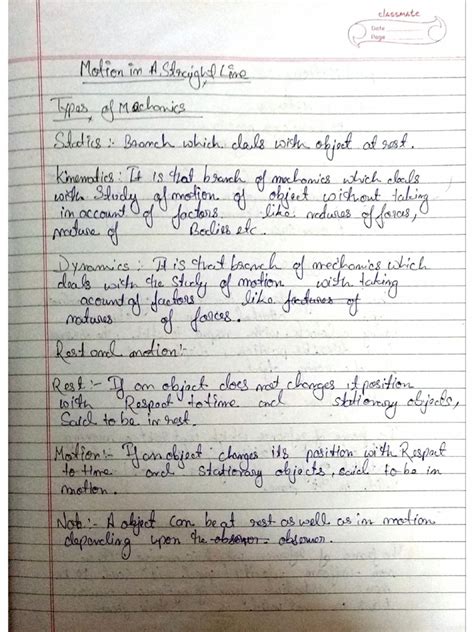 classmate
Date
Page
Motion in A Straight Line
Types of Mechanics
Statics :- Branch which deals with object at rest.
Kinematics : It is that branch of mechanics which deals
with Study of motion of object without taking
in account of factors. like natures of forces,
nature of Bodies etc.
Dynamics : It is that branch of mechanics which
deals with the study of motion with taking
account of factors like factures of
natures of forces.
Rest and motion :-
Rest :- If an object does not changes it position
with Respect to time and stationary objects,
Said to be in rest.
Motion :- If an object changes its position with Respect
to time and stationary objects, said to be in
motion.
Not :- A object can be at rest as well as in motion
depending upon the observer.